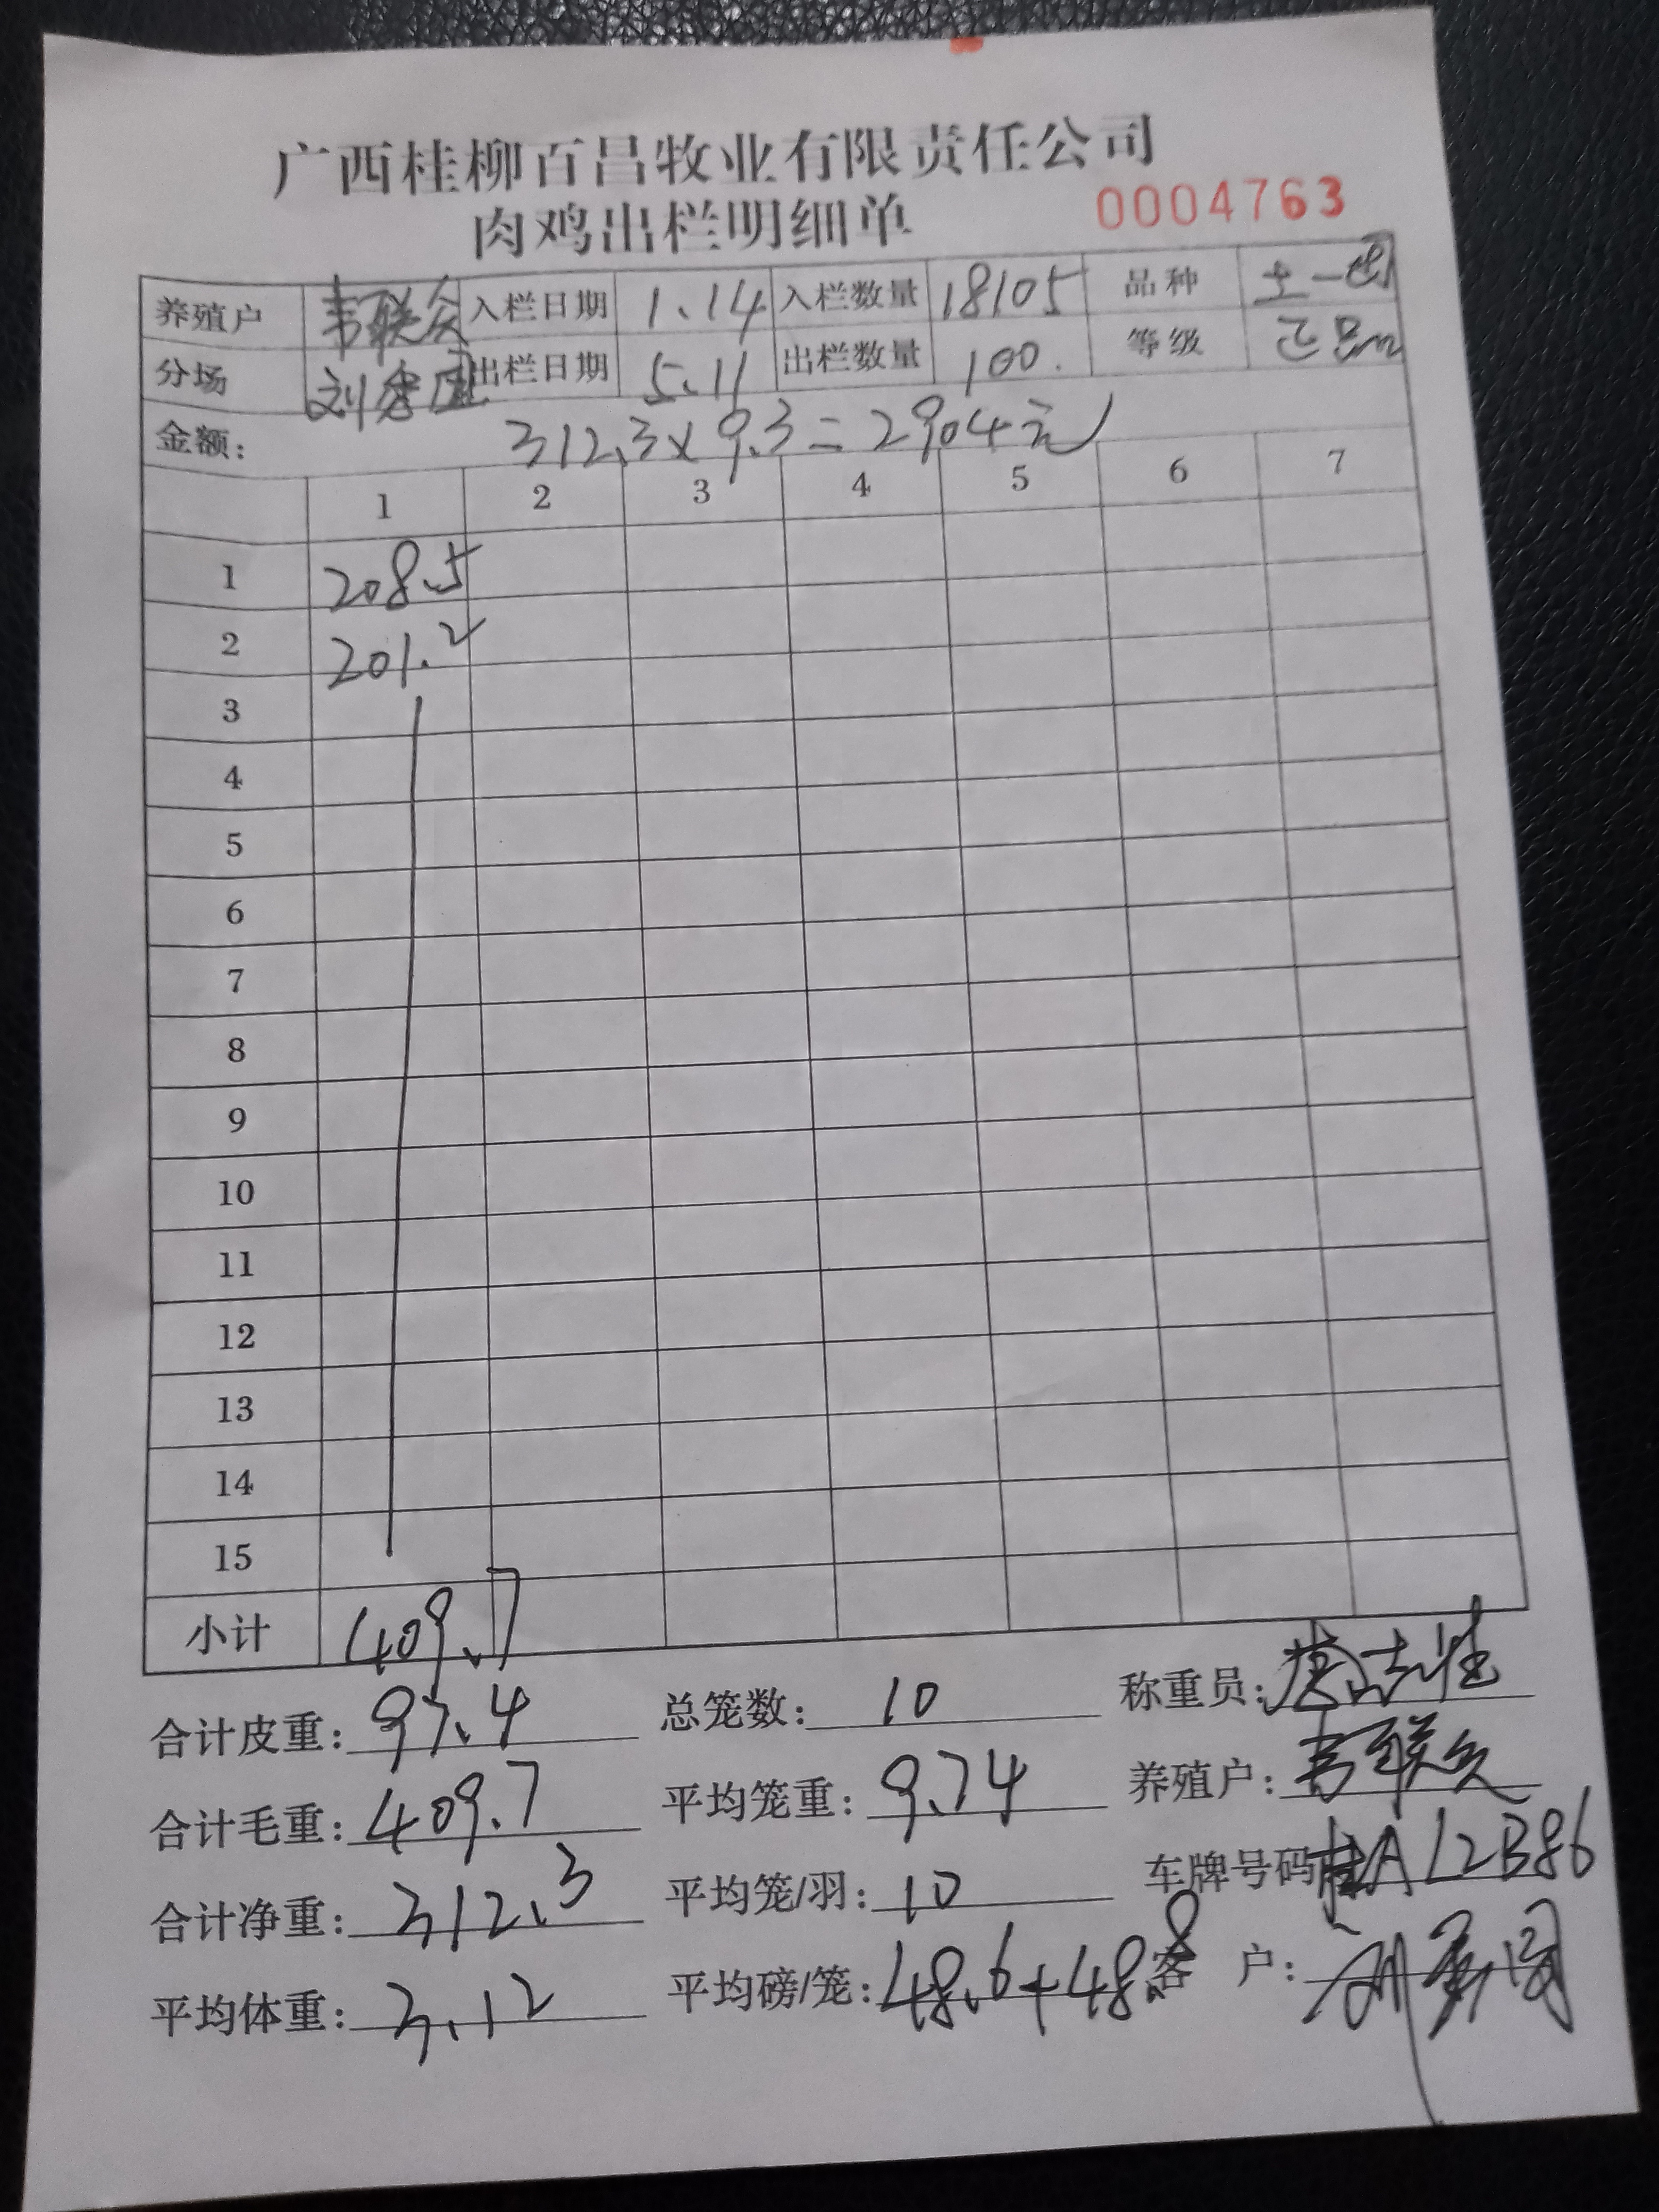 广西桂柳百昌牧业有限责任公司
肉鸡出栏明细单 0004763
养殖户 韦联众 入栏日期 1.14 入栏数量 18105 品种 土一
分场 刘 出栏日期 5.11 出栏数量 100. 等级 正品
金额: 312.3×9.3=2904元
1 2 3 4 5 6 7
1 208.5
2 201.2
3
4
5
6
7
8
9
10
11
12
13
14
15
小计 409.7
合计皮重: 97.4 总笼数: 10 称重员:
合计毛重: 409.7 平均笼重: 9.74 养殖户: 韦联众
合计净重: 312.3 平均笼/羽: 10 车牌号码 桂A12B86
平均体重: 3.12 平均磅/笼: 48.6+48.8 客 户: 刘